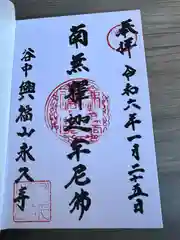 奉拝
令和六年一月二十五日
南無釋迦牟尼佛
谷中
興福山永久寺